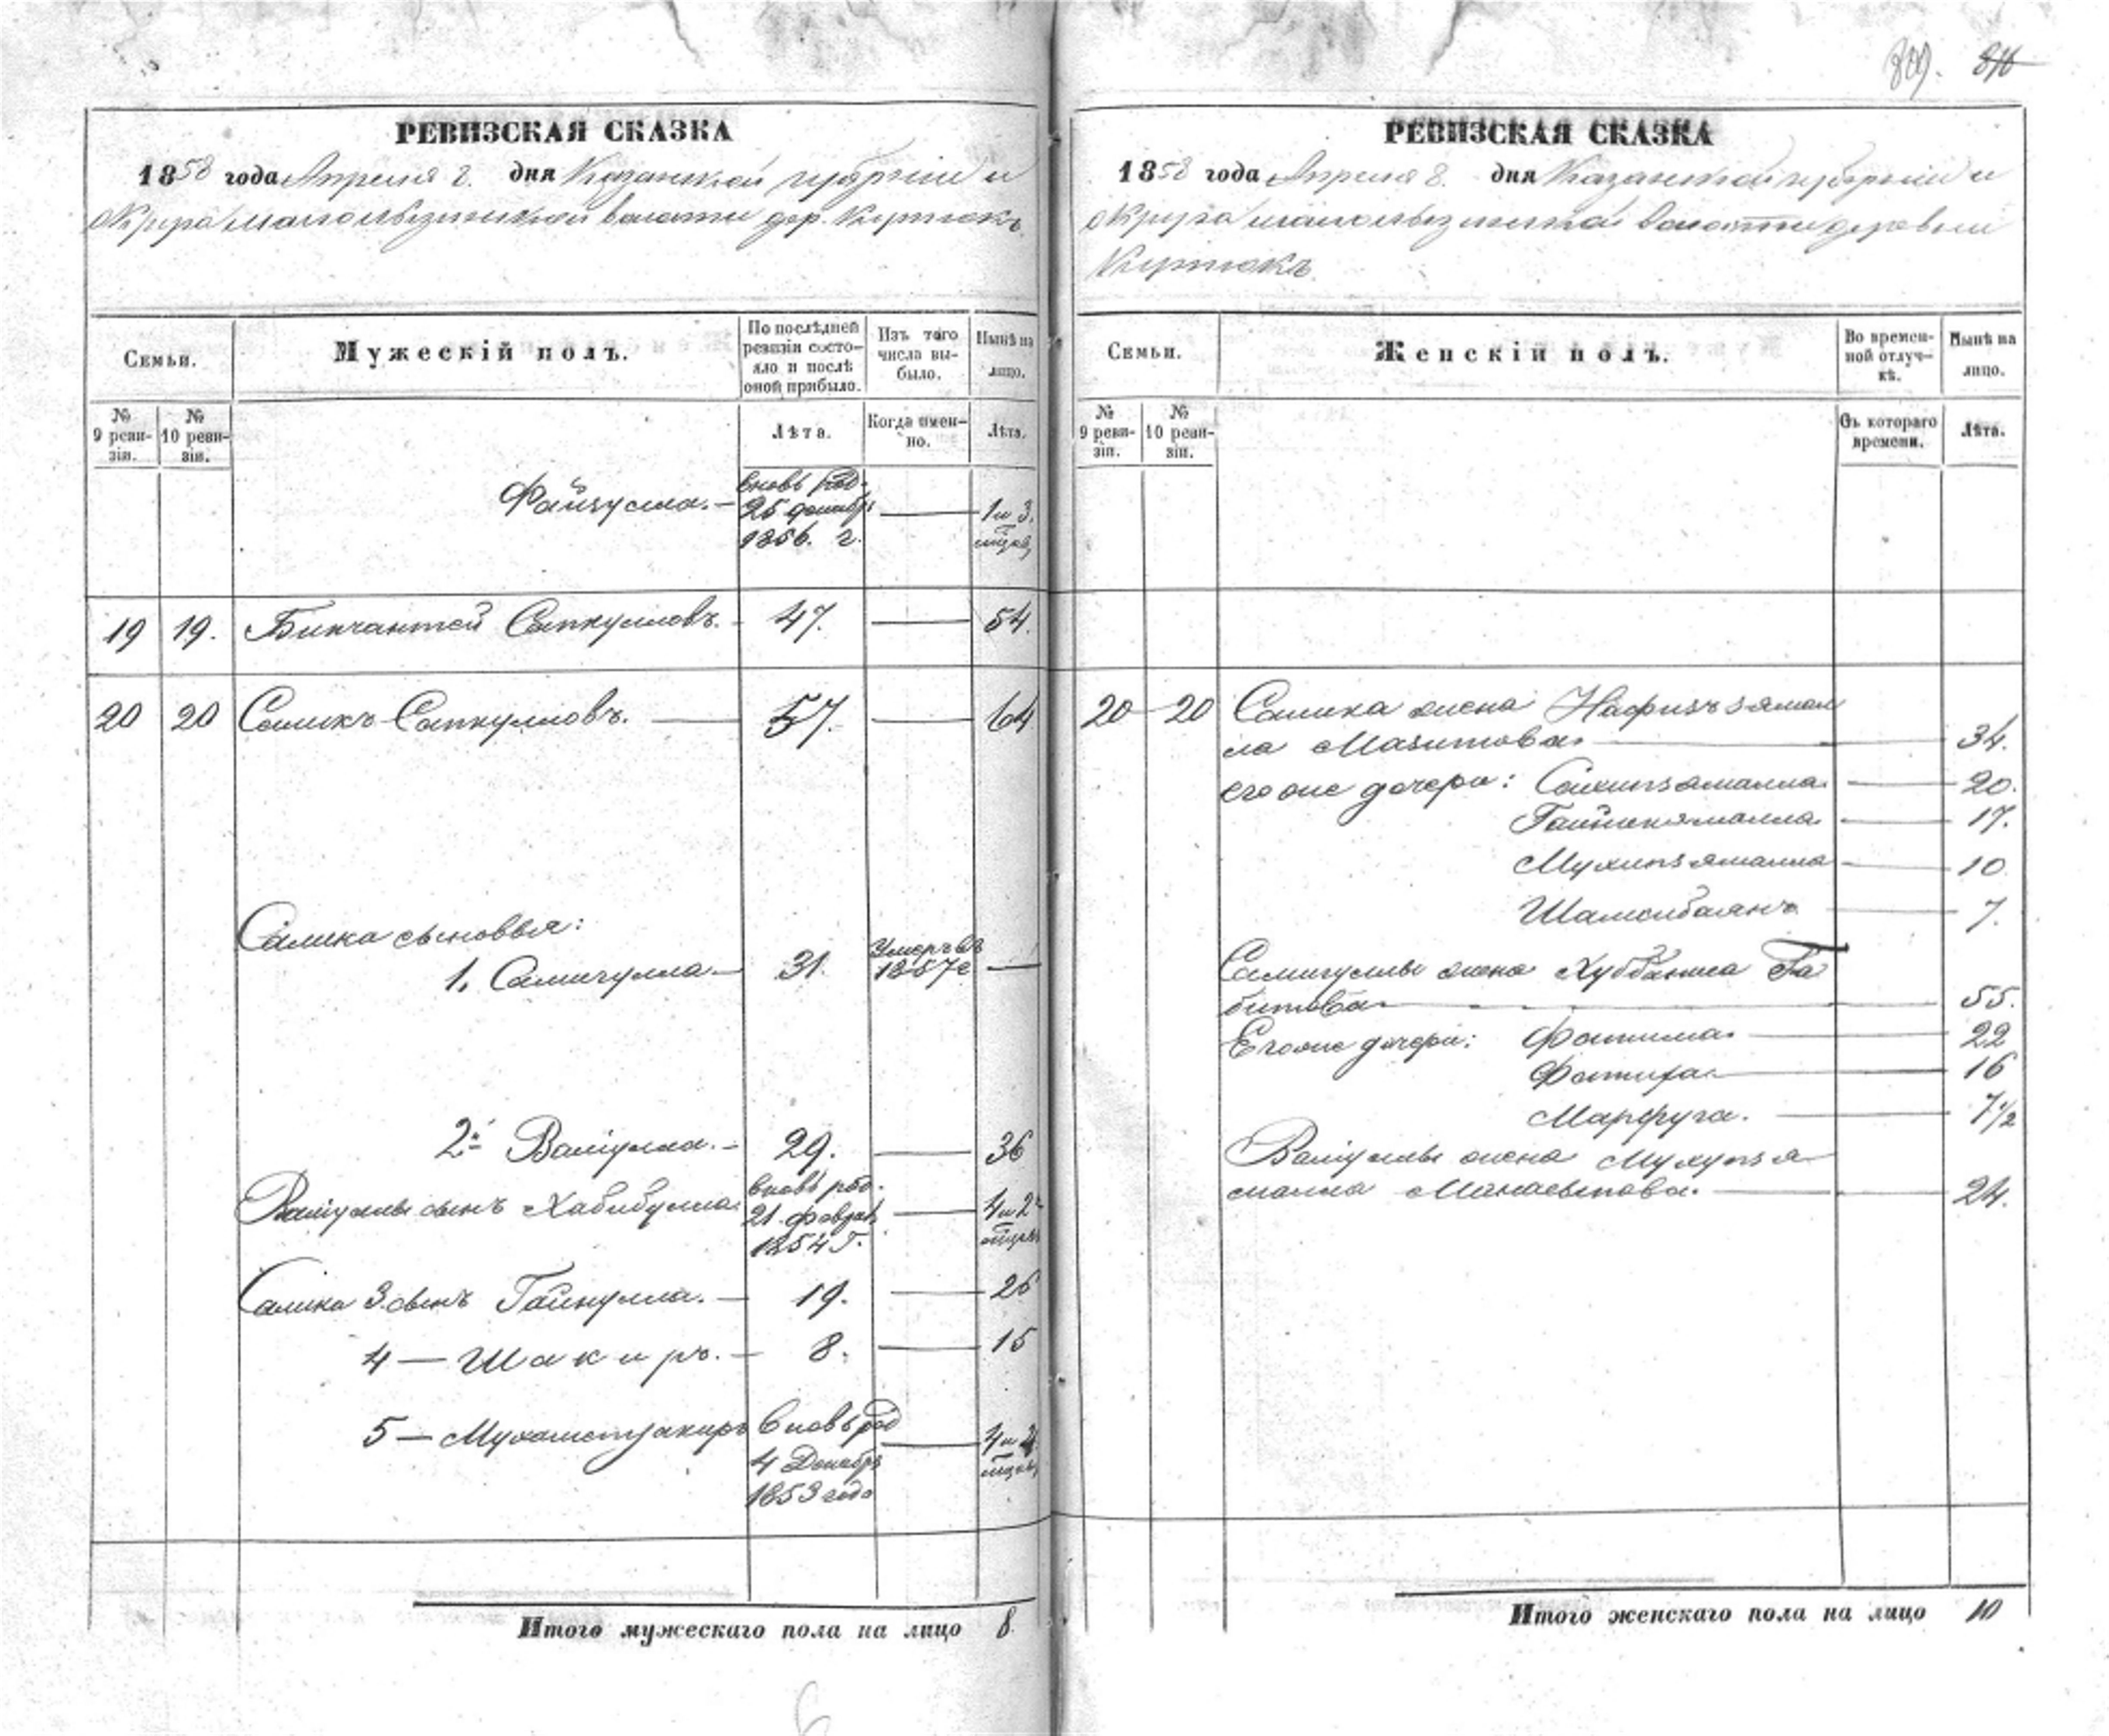 809. 810
РЕВИЗСКАЯ СКАЗКА
1858 года Апреля 8. дня Казанской губернии и
округа волости дер. Куртюкъ
Семьи.
Мужескій полъ.
По послѣдней ревизіи состояло и послѣ оной прибыло.
Изъ того числа выбыло.
Нынѣ на лицо.
№ 9 ревизіи.
№ 10 ревизіи.
Лѣта.
Когда именно.
Лѣта.
Файзулла. вновь род. 25 декабр 1856. г. 1 и 3.
19 19. Бикчантей Сапкуловъ. 47. 54.
20 20 Саликъ Сапкуловъ. 57. 64
Салика сыновья:
1. Самигулла 31. Умеръ въ 1857 г
2й Валіулла. 29. 36
Валіуллы сынъ Хабибулла вновь род. 21 феврал 1854 г. 4 и 2
Салика 3. сынъ Гайнулла. 19. 26
4 Шакиръ. 8. 15
5 Мухаметзакиръ вновь род 4 Декабр 1853 года 4 и 4
Итого мужескаго пола на лицо 8
РЕВИЗСКАЯ СКАЗКА
1858 года Апреля 8. дня Казанской губерніи и
округа волости деревни
Куртюкъ
Семьи.
Женскій полъ.
Во временной отлучкѣ.
Нынѣ на лицо.
№ 9 ревизіи.
№ 10 ревизіи.
Съ котораго времени.
Лѣта.
20 20 Салика жена Нафизъзямал
ла Мазитова 34.
его же дочери: 20.
17.
10
Шамсибаянъ 7.
Самигуллы жена Хуббаниса Га
битова 55.
Его же дочери: Фатима 22
Фатиха 16
Марфуга. 7 1/2
Валіуллы жена Мухупзя
малла 24.
Итого женскаго пола на лицо 10